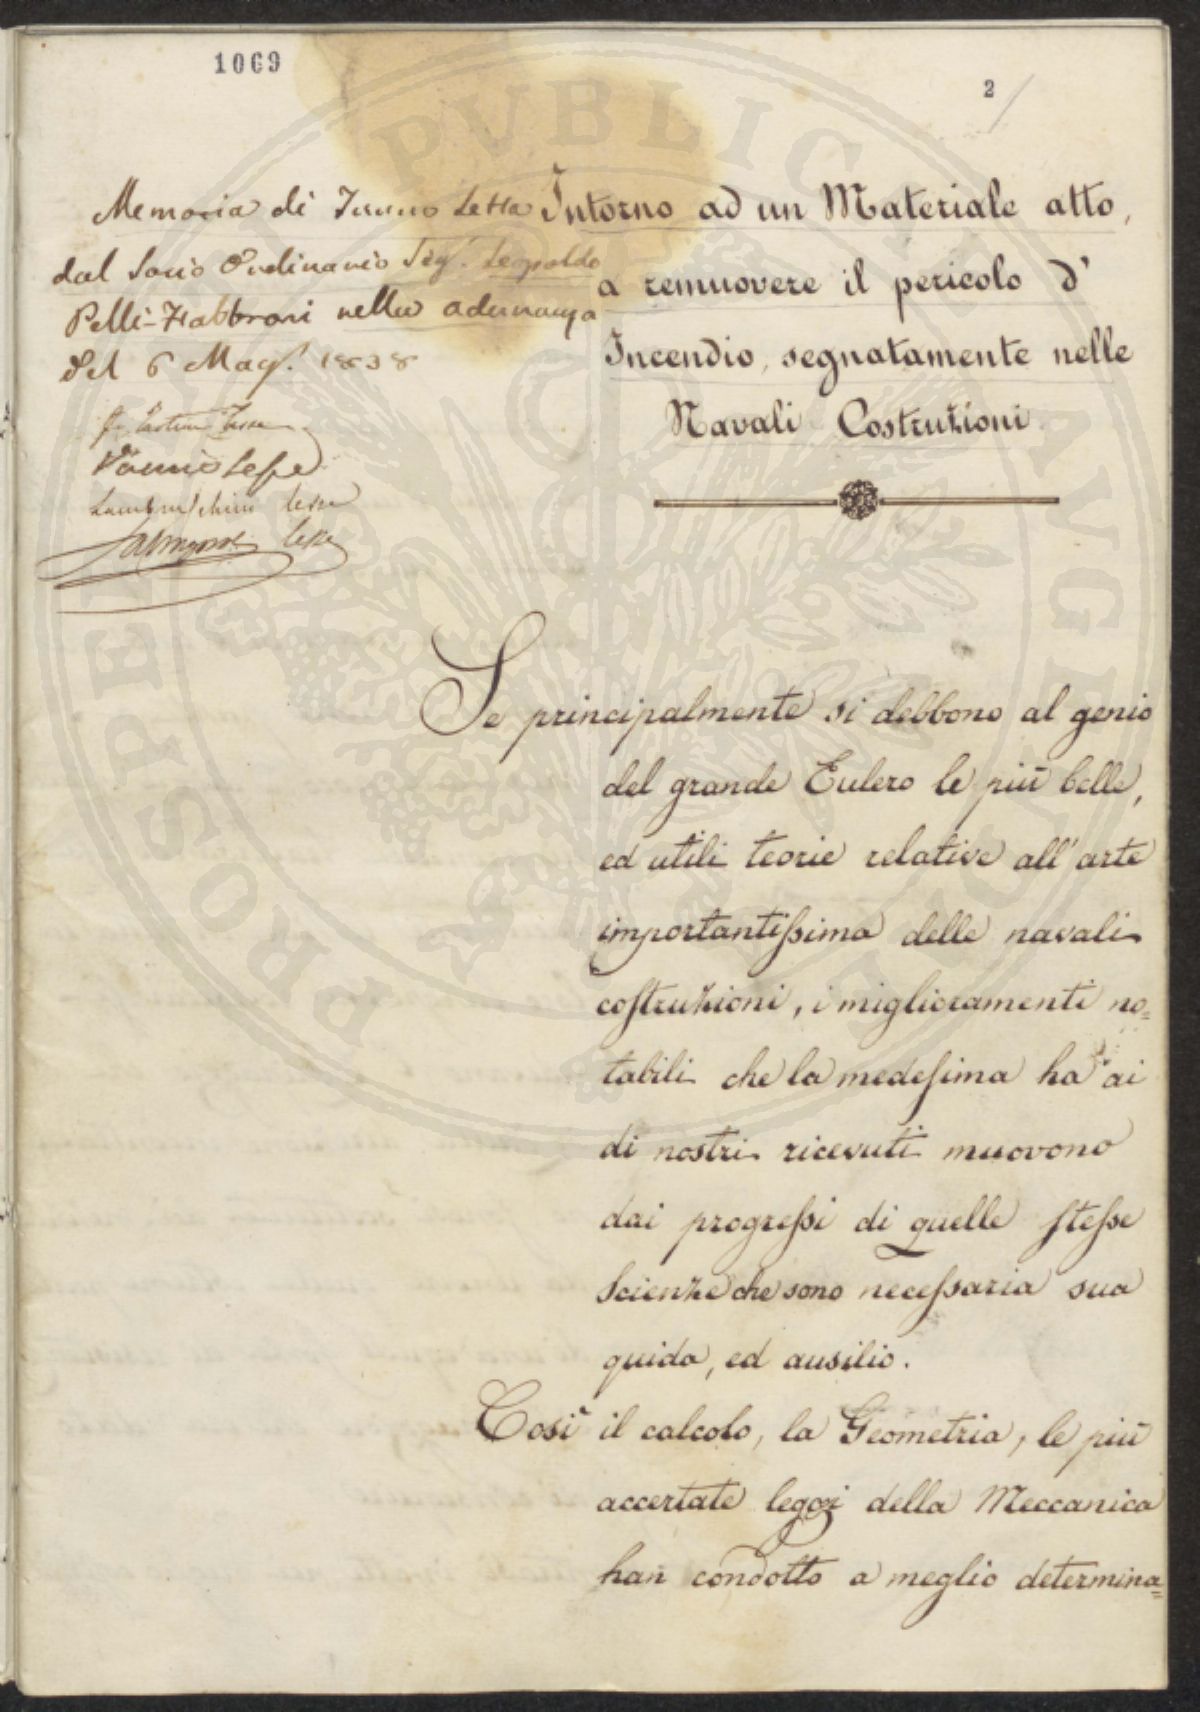 1069
2
Memoria di Turno Letta
dal Socio Ordinario Sigr. Leopoldo
Pelli-Fabbroni nella adunanza
del 6 Magg. 1838
Lambruschini lesse
lesse
Intorno ad un Materiale atto,
a remuovere il pericolo d'
Incendio, segnatamente nelle
Navali Costruzioni
Se principalmente si debbono al genio
del grande Eulero le più belle,
ed utili teorie relative all'arte
importantissima delle navali
costruzioni, i miglioramenti no=
tabili che la medesima ha ai
di nostri ricevuti muovono
dai progressi di quelle stesse
Scienze che sono necessaria sua
guida, ed ausilio.
Così il calcolo, la Geometria, le più
accertate leggi della Meccanica
han condotto a meglio determina=
PROSPERITATI PUBLICAE AUGENDAE